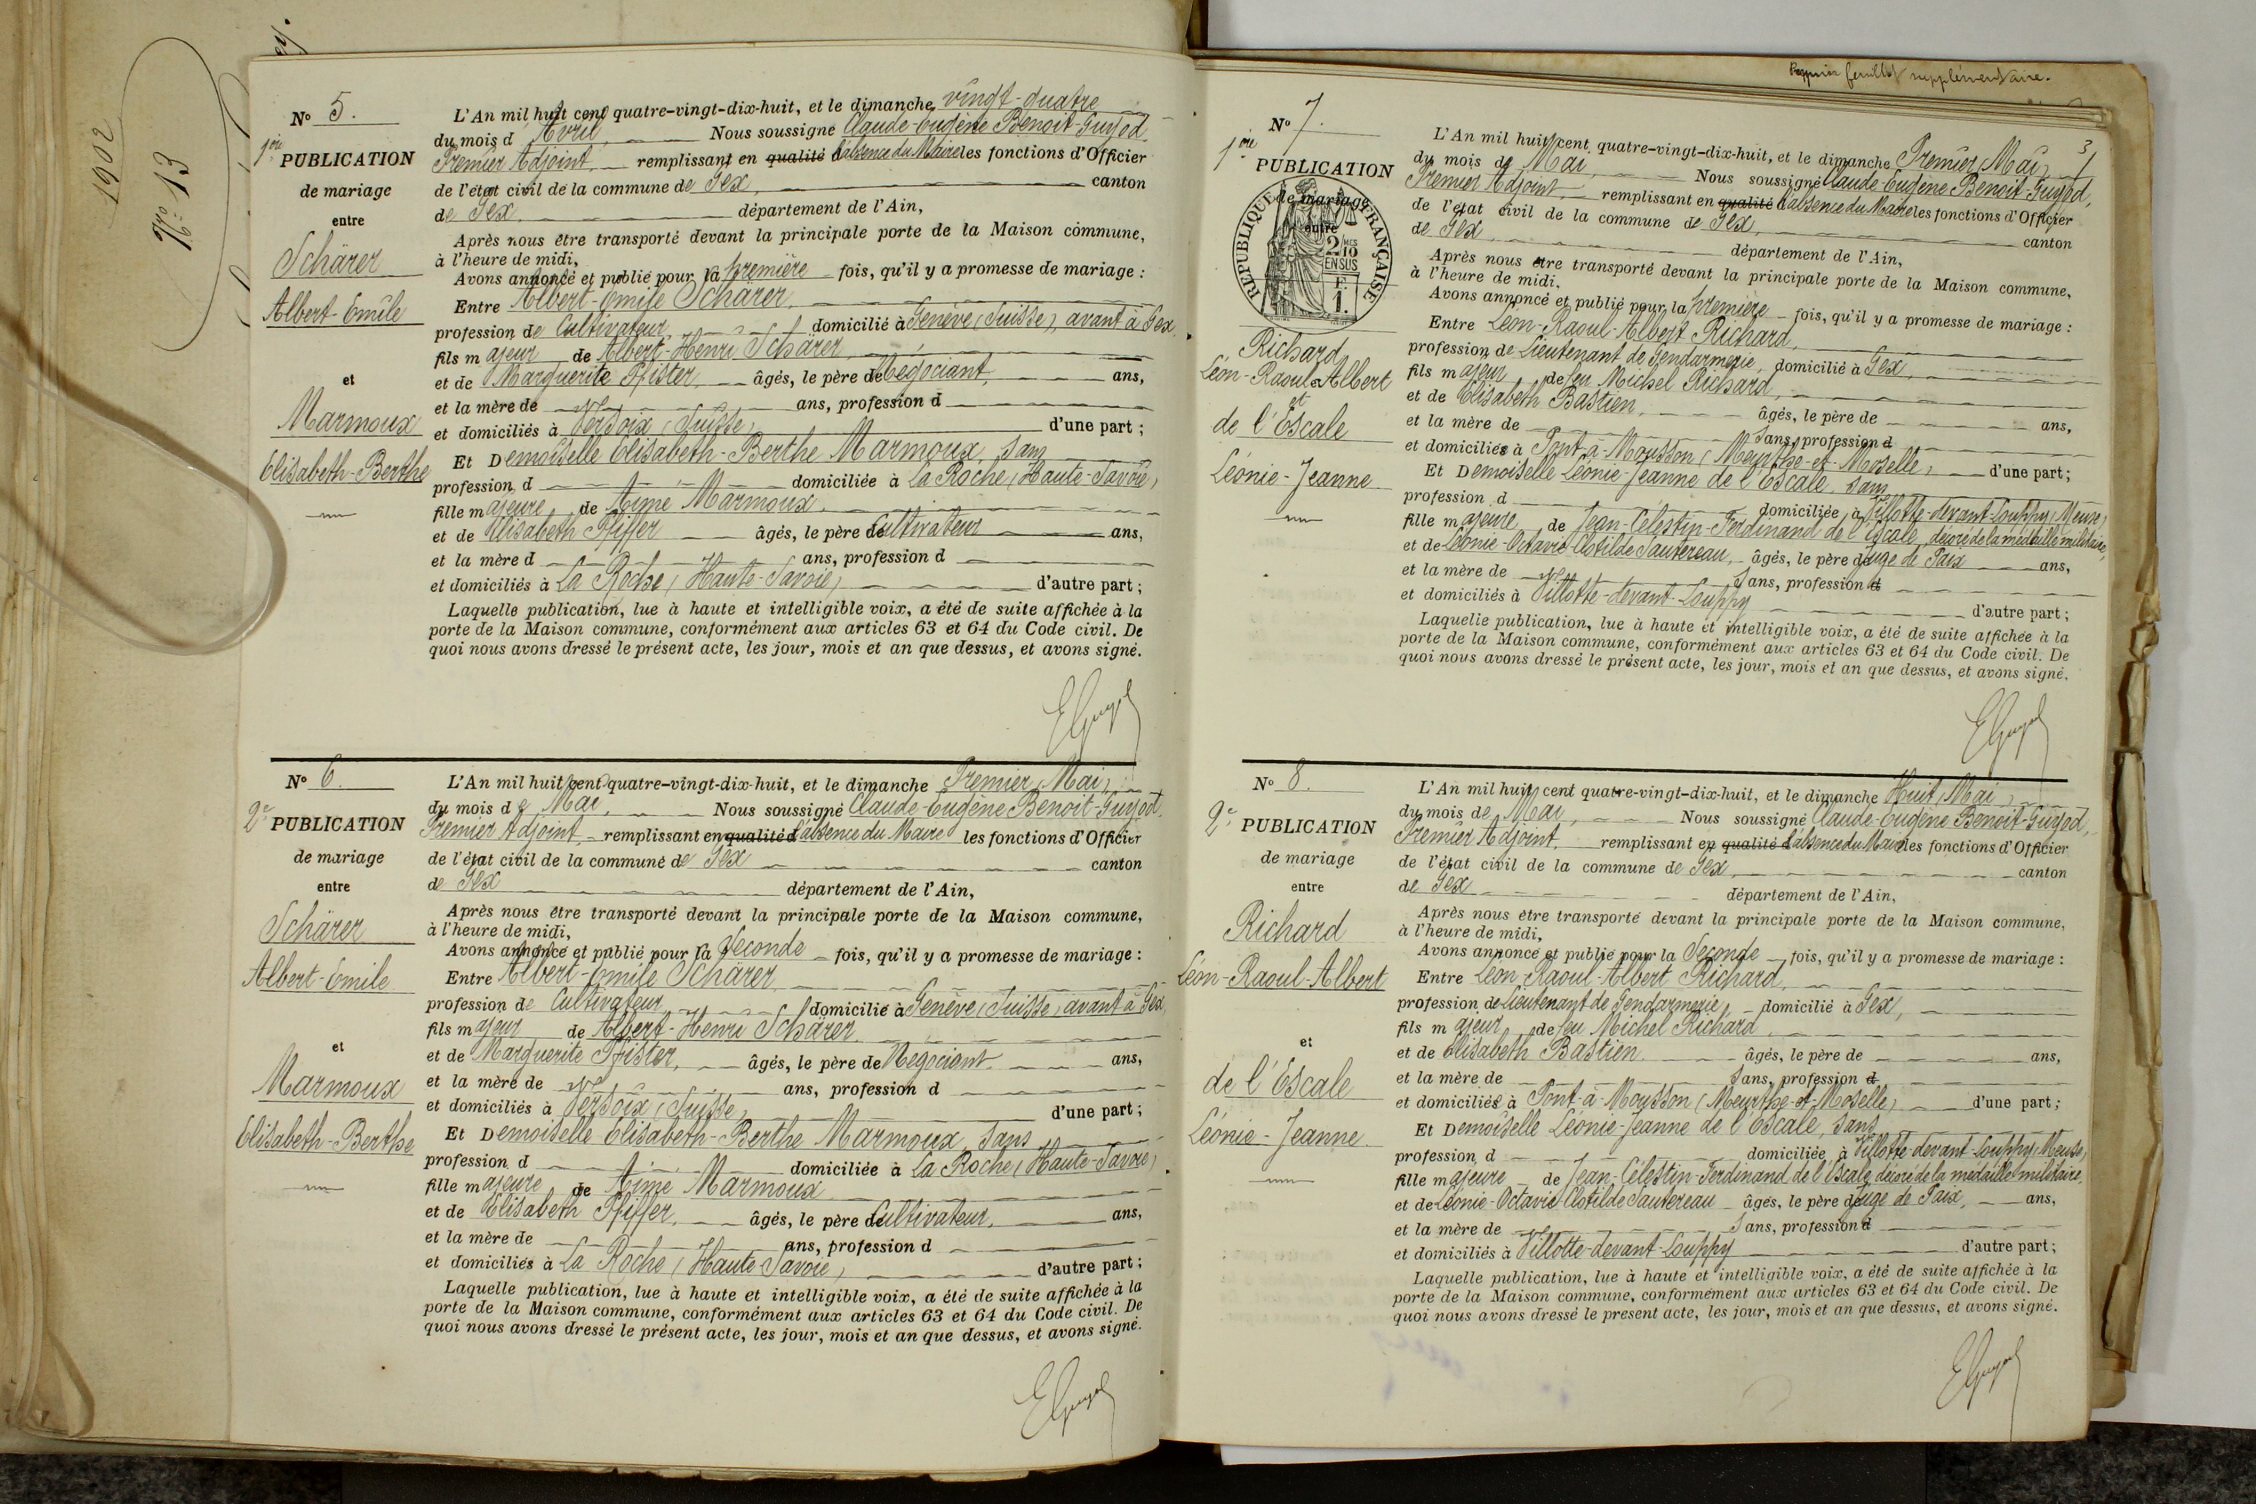 1902
No 13
No 5.
1ère
PUBLICATION
de mariage
entre
Schärer
Albert-Emile
et
Marmoux
Elisabeth-Berthe
L'An mil huit cent quatre-vingt-dix-huit, et le dimanche vingt-quatre
du mois d'Avril, Nous soussigné Claude-Eugène Benoit-Guyod,
Premier Adjoint, remplissant en qualité d l'absence du Maire les fonctions d'Officier
de l'état civil de la commune de Gex, canton
de Gex, département de l'Ain,
Après nous être transporté devant la principale porte de la Maison commune,
à l'heure de midi,
Avons annoncé et publié pour la première fois, qu'il y a promesse de mariage :
Entre Albert-Emile Schärer,
profession de Cultivateur, domicilié à Genève (Suisse), avant à Gex,
fils majeur de Albert-Henri Schärer,
et de Marguerite Pfister, âgés, le père de Négociant, ans,
et la mère de ans, profession d
et domiciliés à Versoix (Suisse) d'une part ;
Et Demoiselle Elisabeth-Berthe Marmoux, sans
profession d domiciliée à La Roche (Haute-Savoie)
fille majeure, de Aimé Marmoux,
et de Elisabeth Pfiffer âgés, le père de Cultivateur ans,
et la mère d ans, profession d
et domiciliés à La Roche (Haute-Savoie) d'autre part ;
Laquelle publication, lue à haute et intelligible voix, a été de suite affichée à la
porte de la Maison commune, conformément aux articles 63 et 64 du Code civil. De
quoi nous avons dressé le présent acte, les jour, mois et an que dessus, et avons signé.
EGuyod
No 6.
2e
PUBLICATION
de mariage
entre
Schärer
Albert-Emile
et
Marmoux
Elisabeth-Berthe
L'An mil huit cent quatre-vingt-dix-huit, et le dimanche Premier Mai,
du mois de Mai, Nous soussigné Claude-Eugène Benoit-Guyod,
Premier Adjoint, remplissant en qualité d l'absence du Maire les fonctions d'Officier
de l'état civil de la commune de Gex canton
de Gex département de l'Ain,
Après nous être transporté devant la principale porte de la Maison commune,
à l'heure de midi,
Avons annoncé et publié pour la Seconde fois, qu'il y a promesse de mariage :
Entre Albert-Emile Schärer,
profession de Cultivateur, domicilié à Genève (Suisse), avant à Gex,
fils majeur de Albert-Henri Schärer
et de Marguerite Pfister, âgés, le père de Négociant ans,
et la mère de ans, profession d
et domiciliés à Versoix (Suisse) d'une part ;
Et Demoiselle Elisabeth-Berthe Marmoux, sans
profession d domiciliée à La Roche (Haute-Savoie)
fille majeure de Aimé Marmoux
et de Elisabeth Pfiffer, âgés, le père de Cultivateur, ans,
et la mère de ans, profession d
et domiciliés à La Roche (Haute-Savoie) d'autre part ;
Laquelle publication, lue à haute et intelligible voix, a été de suite affichée à la
porte de la Maison commune, conformément aux articles 63 et 64 du Code civil. De
quoi nous avons dressé le présent acte, les jour, mois et an que dessus, et avons signé.
EGuyod
feuillet supplémentaire.
3
No 7.
1ère
PUBLICATION
de mariage
entre
RÉPUBLIQUE FRANÇAISE
2/10 MES
EN SUS
F.
1.
Richard
Léon-Raoul-Albert
et
de l'Escale
Léonie-Jeanne
L'An mil huit cent quatre-vingt-dix-huit, et le dimanche Premier Mai,
du mois de Mai, Nous soussigné Claude-Eugène Benoit-Guyod,
Premier Adjoint, remplissant en qualité d l'absence du Maire les fonctions d'Officier
de l'état civil de la commune de Gex, canton
de Gex, département de l'Ain,
Après nous être transporté devant la principale porte de la Maison commune,
à l'heure de midi.
Avons annoncé et publié pour la première fois, qu'il y a promesse de mariage :
Entre Léon-Raoul-Albert Richard,
profession de Lieutenant de Gendarmerie, domicilié à Gex,
fils majeur de feu Michel Richard,
et de Elisabeth Bastien, âgés, le père de ans,
et la mère de sans profession d
et domiciliés à Pont-à-Mousson (Meurthe-et-Moselle), d'une part ;
Et Demoiselle Léonie-Jeanne de l'Escale, sans
profession d domiciliée à Villotte-devant-Louppy (Meuse)
fille majeure de Jean-Célestin-Ferdinand de l'Escale, décoré de la médaille militaire,
et de Léonie-Octavie Clotilde Sautereau, âgés, le père de Juge de Paix ans,
et la mère de Sans, profession d
et domiciliés à Villotte-devant-Louppy d'autre part ;
Laquelle publication, lue à haute et intelligible voix, a été de suite affichée à la
porte de la Maison commune, conformément aux articles 63 et 64 du Code civil. De
quoi nous avons dressé le présent acte, les jour, mois et an que dessus, et avons signé.
EGuyod
No 8.
2e
PUBLICATION
de mariage
entre
Richard
Léon-Raoul-Albert
et
de l'Escale
Léonie-Jeanne
L'An mil huit cent quatre-vingt-dix-huit, et le dimanche Huit Mai,
du mois de Mai, Nous soussigné Claude-Eugène Benoit-Guyod,
Premier Adjoint, remplissant en qualité d l'absence du Maire les fonctions d'Officier
de l'état civil de la commune de Gex, canton
de Gex département de l'Ain,
Après nous être transporté devant la principale porte de la Maison commune,
à l'heure de midi,
Avons annoncé et publié pour la Seconde fois, qu'il y a promesse de mariage :
Entre Léon-Raoul-Albert Richard,
profession de Lieutenant de Gendarmerie, domicilié à Gex,
fils majeur de feu Michel Richard
et de Elisabeth Bastien âgés, le père de ans,
et la mère de Sans, profession d
et domiciliés à Pont-à-Mousson (Meurthe-et-Moselle) d'une part ;
Et Demoiselle Léonie-Jeanne de l'Escale, sans
profession d domiciliée à Villotte-devant-Louppy (Meuse)
fille majeure de Jean-Célestin-Ferdinand de l'Escale décoré de la médaille militaire,
et de Léonie-Octavie Clotilde Sautereau âgés, le père de Juge de Paix, ans,
et la mère de Sans, profession d
et domiciliés à Villotte-devant-Louppy d'autre part ;
Laquelle publication, lue à haute et intelligible voix, a été de suite affichée à la
porte de la Maison commune, conformément aux articles 63 et 64 du Code civil. De
quoi nous avons dressé le présent acte, les jour, mois et an que dessus, et avons signé.
EGuyod